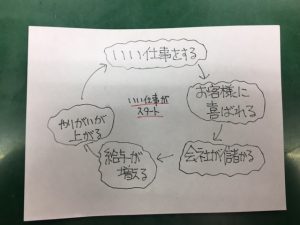 いい仕事をする
お客様に
喜ばれる
会社が儲かる
給与が
増える
やりがいが
上がる
いい仕事が
スタート